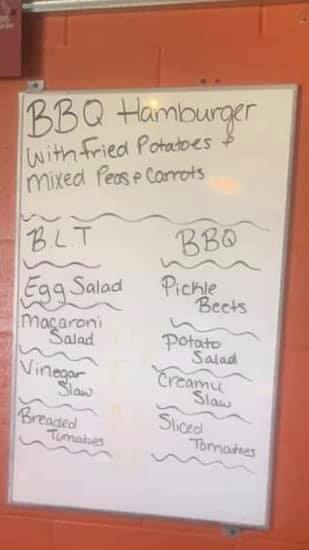 BBQ Hamburger
with Fried Potatoes +
Mixed Peas & Carrots
B.L.T
BBQ
Egg Salad
Pickle
Beets
Macaroni
Salad
Potato
Salad
Vinegar
Slaw
Creamy
Slaw
Breaded
Tomatoes
Sliced
Tomatoes